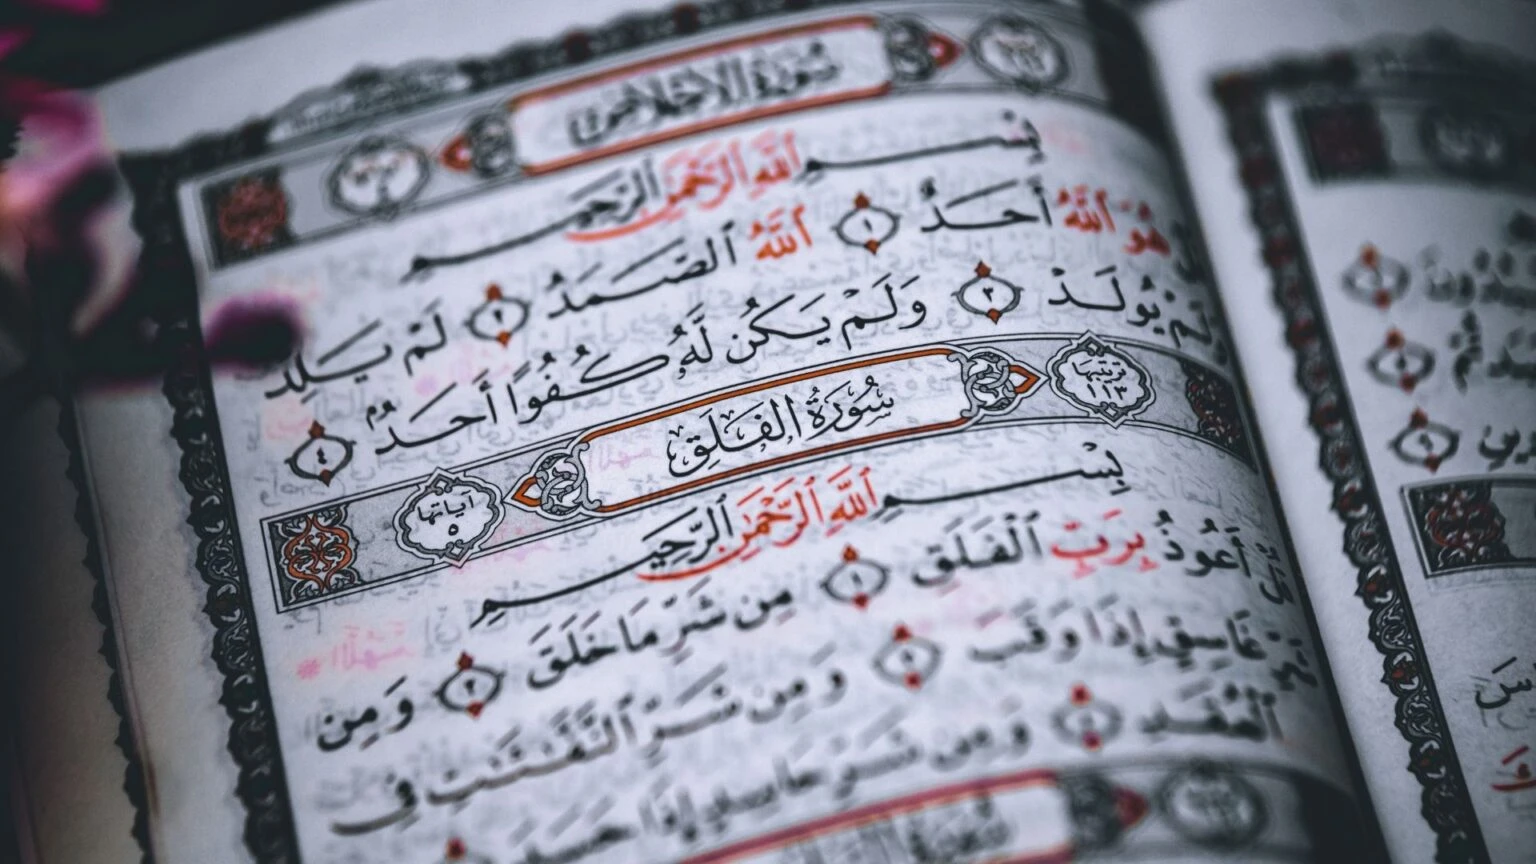 سُورَةُ الإِخْلَاصِ
بِسْمِ ٱللَّهِ ٱلرَّحْمَٰنِ ٱلرَّحِيمِ
هُوَ ٱللَّهُ أَحَدٌ ١ ٱللَّهُ ٱلصَّمَدُ ٢ لَمْ يَلِدْ
وَلَمْ يُولَدْ ٣ وَلَمْ يَكُن لَّهُۥ كُفُوًا أَحَدٌۢ ٤
تَرْتِيبُهَا ١١٣
سُورَةُ الفَلَقِ
آيَاتُهَا ٥
بِسْمِ ٱللَّهِ ٱلرَّحْمَٰنِ ٱلرَّحِيمِ
قُلْ أَعُوذُ بِرَبِّ ٱلْفَلَقِ ١ مِن شَرِّ مَا خَلَقَ ٢ وَمِن
غَاسِقٍ إِذَا وَقَبَ ٣ وَمِن شَرِّ ٱلنَّفَّٰثَٰتِ فِى
ٱلْعُقَدِ ٤ وَمِن شَرِّ حَاسِدٍ إِذَا حَسَدَ